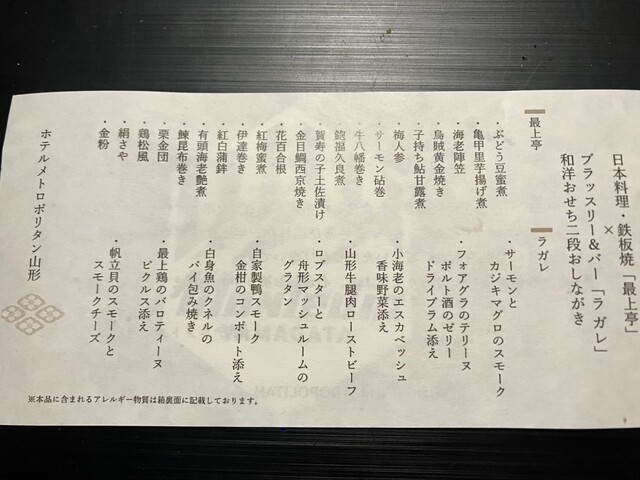 日本料理・鉄板焼「最上亭」
×
ブラッスリー&バー「ラ ガレ」
和洋おせち二段おしながき
最上亭
・ぶどう豆蜜煮
・亀甲里芋揚げ煮
・海老陣笠
・烏賊黄金焼き
・子持ち鮎甘露煮
・梅人参
・サーモン砧巻
・牛八幡巻き
・鮑福久良煮
・賀寿の子土佐漬け
・金目鯛西京焼き
・花百合根
・紅梅蜜煮
・伊達巻き
・紅白蒲鉾
・有頭海老艶煮
・鰊昆布巻き
・栗金団
・鶏松風
・絹さや
・金粉
ラ ガレ
・サーモンと
カジキマグロのスモーク
・フォアグラのテリーヌ
ポルト酒のゼリー
ドライプラム添え
・小海老のエスカベッシュ
香味野菜添え
・山形牛腿肉ローストビーフ
・ロブスターと
舟形マッシュルームの
グラタン
・自家製鴨スモーク
金柑のコンポート添え
・白身魚のクネルの
パイ包み焼き
・最上鶏のバロティーヌ
ピクルス添え
・帆立貝のスモークと
スモークチーズ
ホテルメトロポリタン山形
※本品に含まれるアレルギー物質は箱裏面に記載しております。